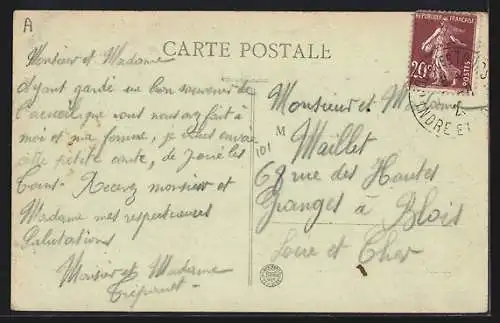 A
CARTE POSTALE
REPUBLIQUE FRANÇAISE
20c
POSTES
INDRE ET
Monsieur et Madame
Ayant gardé un bon souvenir de
l'accueil que vous nous avez fait à
moi et ma femme, je vous envoie
cette petite carte, de Joué les
Tours. Recevez monsieur et
Madame mes respectueuses
Salutations
Monsieur et Madame
Monsieur et Madame
M
Maillet
101
68 rue des Hautes
Granges à Blois
Loire et Cher